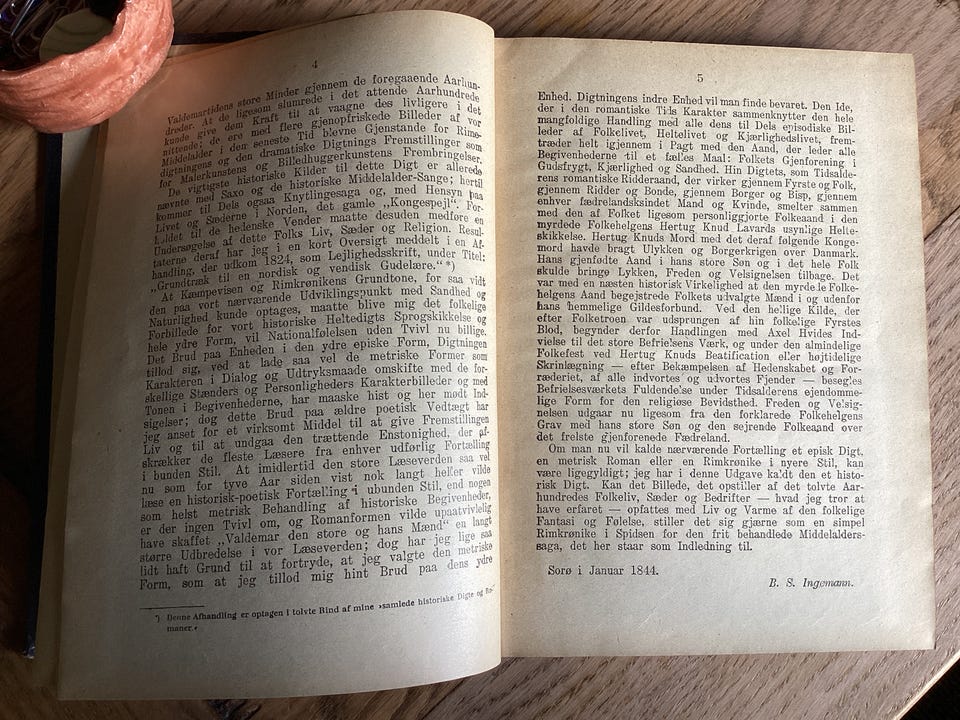 4
Valdemartidens store Minder gjennem de foregaaende Aarhun-
dreder. At de ligesom slumrede i det attende Aarhundrede
kunde give dem Kraft til at vaagne des livligere i det
nittende; de ere med flere gjenopfriskede Billeder af vor
Middelalder i den seneste Tid blevne Gjenstande for Rime-
digtningens og den dramatiske Digtnings Fremstillinger som
for Malerkunstens og Billedhuggerkunstens Frembringelser.
De vigtigste historiske Kilder til dette Digt er allerede
nævnte med Saxo og de historiske Middelalder-Sange; hertil
kommer til Dels ogsaa Knytlingesaga og, med Hensyn paa
Livet og Sæderne i Norden, det gamle „Kongespejl“. For-
holdet til de hedenske Vender maatte desuden medføre en
Undersøgelse af dette Folks Liv, Sæder og Religion. Resul-
taterne deraf har jeg i en kort Oversigt meddelt i en Af-
handling, der udkom 1824, som Lejlighedsskrift, under Titel:
„Grundtræk til en nordisk og vendisk Gudelære.“ *)
At Kæmpevisen og Rimkrønikens Grundtone, for saa vidt
den paa vort nærværende Udviklingspunkt med Sandhed og
Naturlighed kunde optages, maatte blive mig det folkelige
Forbillede for vort historiske Heltedigts Sprogskikkelse og
hele ydre Form, vil Nationalfølelsen uden Tvivl nu billige.
Det Brud paa Enheden i den ydre episke Form, Digtningen
tillod sig, ved at lade saa vel de metriske Former som
Karakteren i Dialog og Udtryksmaade omskifte med de for-
skellige Stænders og Personligheders Karakterbilleder og med
Tonen i Begivenhederne, har maaske hist og her mødt Ind-
sigelser; dog dette Brud paa ældre poetisk Vedtægt har
jeg anset for et virksomt Middel til at give Fremstillingen
Liv og til at undgaa den trættende Enstonighed, der af-
skrækker de fleste Læsere fra enhver udførlig Fortælling
i bunden Stil. At imidlertid den store Læseverden saa vel
nu som for tyve Aar siden vist nok langt heller vilde
læse en historisk-poetisk Fortælling i ubunden Stil, end nogen
som helst metrisk Behandling af historiske Begivenheder,
er der ingen Tvivl om, og Romanformen vilde upaatvivlelig
have skaffet „Valdemar den store og hans Mænd“ en langt
større Udbredelse i vor Læseverden; dog har jeg lige saa
lidt haft Grund til at fortryde, at jeg valgte den metriske
Form, som at jeg tillod mig hint Brud paa dens ydre
*) Denne Afhandling er optagen i tolvte Bind af mine »samlede historiske Digte og Ro-
maner.«
5
Enhed. Digtningens indre Enhed vil man finde bevaret. Den Ide,
der i den romantiske Tids Karakter sammenknytter den hele
mangfoldige Handling med alle dens til Dels episodiske Bil-
leder af Folkelivet, Heltelivet og Kjærlighedslivet, frem-
træder helt igjennem i Pagt med den Aand, der leder alle
Begivenhederne til et fælles Maal: Folkets Gjenforening i
Gudsfrygt, Kjærlighed og Sandhed. Hin Digtets, som Tidsalde-
rens romantiske Ridderaand, der virker gjennem Fyrste og Folk,
gjennem Ridder og Bonde, gjennem Borger og Bisp, gjennem
enhver fædrelandsksindet Mand og Kvinde, smelter sammen
med den af Folket ligesom personliggjorte Folkeaand i den
myrdede Folkehelgens Hertug Knud Lavards usynlige Helte-
skikkelse. Hertug Knuds Mord med det deraf følgende Konge-
mord havde bragt Ulykken og Borgerkrigen over Danmark.
Hans gjenfødte Aand i hans store Søn og i det hele Folk
skulde bringe Lykken, Freden og Velsignelsen tilbage. Det
var med en næsten historisk Virkelighed at den myrdede Folke-
helgens Aand begejstrede Folkets udvalgte Mænd i og udenfor
hans hemmelige Gildesforbund. Ved den hellige Kilde, der
efter Folketroen var udsprungen af hin folkelige Fyrstes
Blod, begynder derfor Handlingen med Axel Hvides Ind-
vielse til det store Befrielsens Værk, og under den almindelige
Folkefest ved Hertug Knuds Beatification eller højtidelige
Skrinlægning — efter Bekæmpelsen af Hedenskabet og For-
ræderiet, af alle indvortes og udvortes Fjender — besegles
Befrielsesværkets Fuldendelse under Tidsalderens ejendomme-
lige Form for den religiøse Bevidsthed. Freden og Velsig-
nelsen udgaar nu ligesom fra den forklarede Folkehelgens
Grav med hans store Søn og den sejrende Folkeaand over
det frelste gjenforenede Fædreland.
Om man nu vil kalde nærværende Fortælling et episk Digt,
en metrisk Roman eller en Rimkrønike i nyere Stil, kan
være ligegyldigt; jeg har i denne Udgave kaldt den et histo-
risk Digt. Kan det Billede, det opstiller af det tolvte Aar-
hundredes Folkeliv, Sæder og Bedrifter — hvad jeg tror at
have erfaret — opfattes med Liv og Varme af den folkelige
Fantasi og Følelse, stiller det sig gjærne som en simpel
Rimkrønike i Spidsen for den frit behandlede Middelalders-
saga, det her staar som Indledning til.
Sorø i Januar 1844.
B. S. Ingemann.